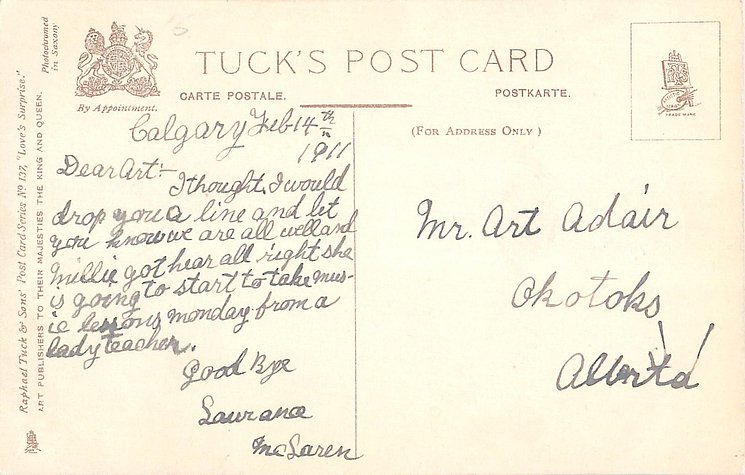 TUCK'S POST CARD
CARTE POSTALE.
POSTKARTE.
By Appointment.
(FOR ADDRESS ONLY)
TRADE MARK
Photochromed
in Saxony
Raphael Tuck & Sons' Post Card Series No 137, "Love's Surprise."
ART PUBLISHERS TO THEIR MAJESTIES THE KING AND QUEEN.
Calgary Feb 14th
1911
Dear Art:-
I thought I would
drop you a line and let
you know we are all well and
Millie got hear all right she
is going to start to take mus-
ic lessons monday from a
lady teacher.
Good Bye
Laurance
McLaren
Mr. Art Adair
Okotoks
Alberta